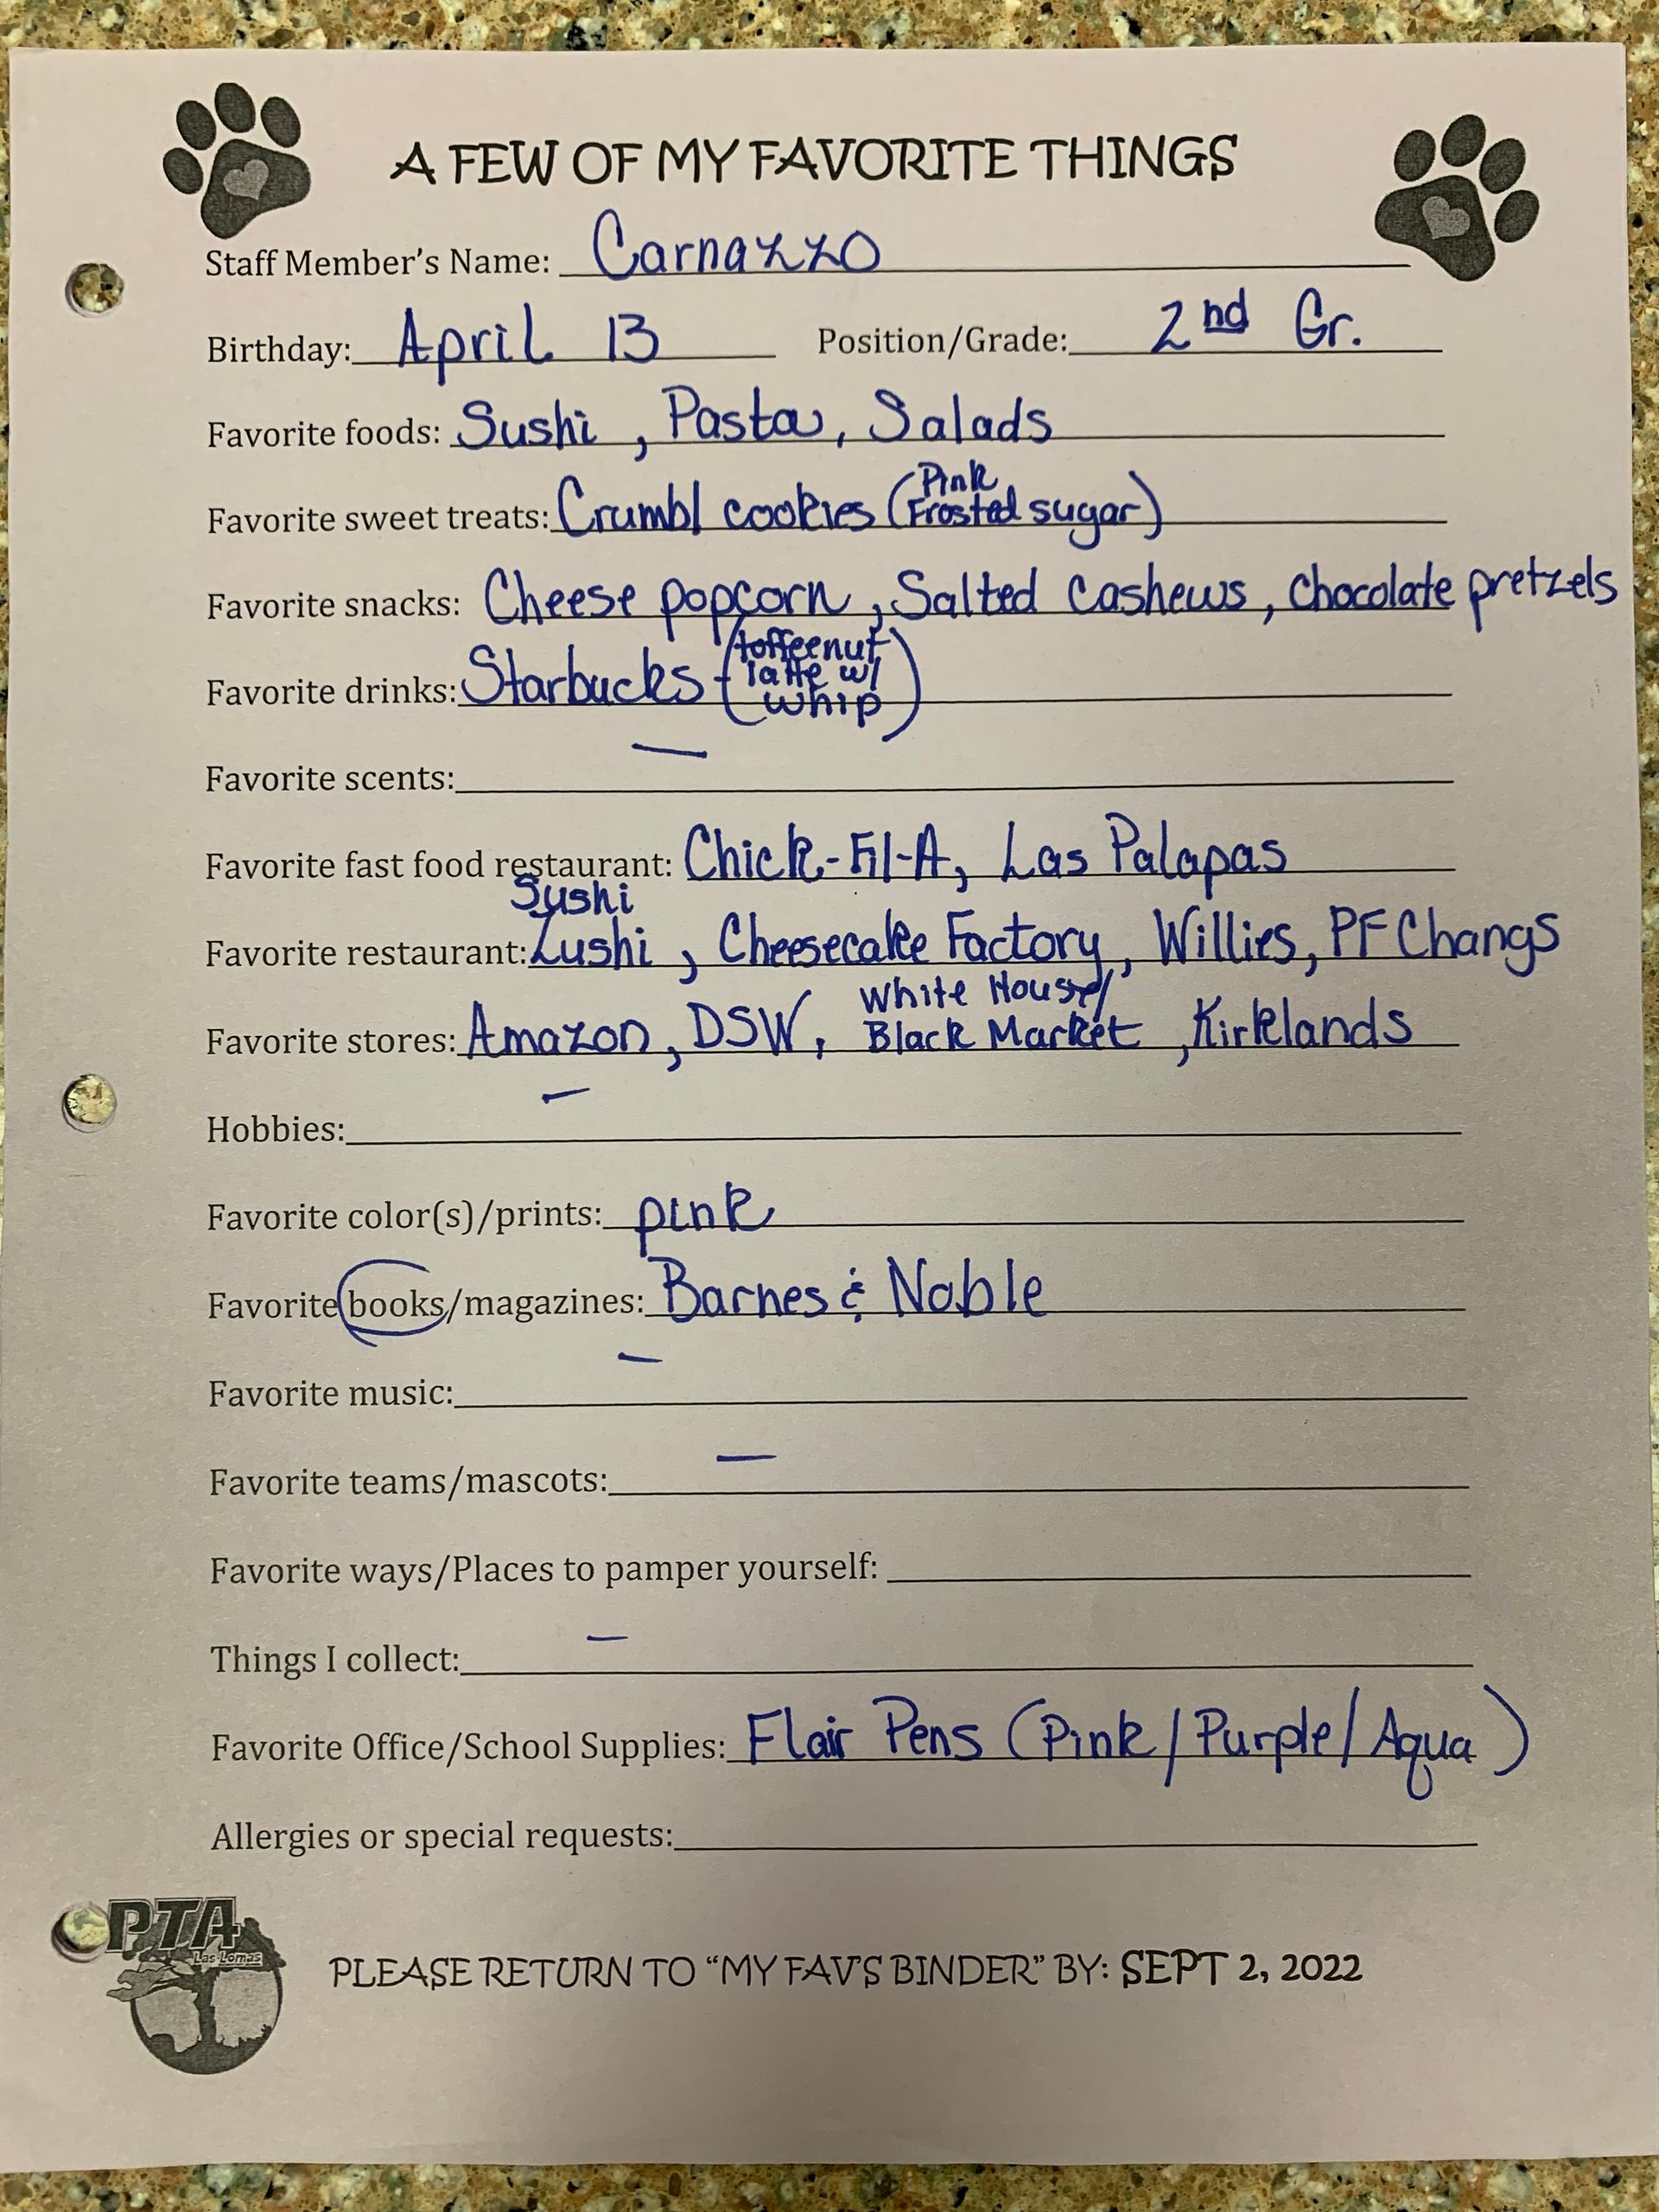 A FEW OF MY FAVORITE THINGS
Staff Member's Name: Carnazzo
Birthday: April 13 Position/Grade: 2nd Gr.
Favorite foods: Sushi, Pasta, Salads
Favorite sweet treats: Crumbl cookies (Pink Frosted sugar)
Favorite snacks: Cheese popcorn, Salted Cashews, Chocolate pretzels
Favorite drinks: Starbucks - (toffeenut latte w/ whip)
Favorite scents: —
Favorite fast food restaurant: Chick-Fil-A, Las Palapas
Favorite restaurant: Sushi Zushi, Cheesecake Factory, Willies, PF Changs
Favorite stores: Amazon, DSW, White House/ Black Market, Kirklands
Hobbies: —
Favorite color(s)/prints: pink
Favorite books/magazines: Barnes & Noble
Favorite music: —
Favorite teams/mascots: —
Favorite ways/Places to pamper yourself:
Things I collect: —
Favorite Office/School Supplies: Flair Pens (Pink/Purple/Aqua)
Allergies or special requests:
PTA
Las Lomas
PLEASE RETURN TO "MY FAV'S BINDER" BY: SEPT 2, 2022